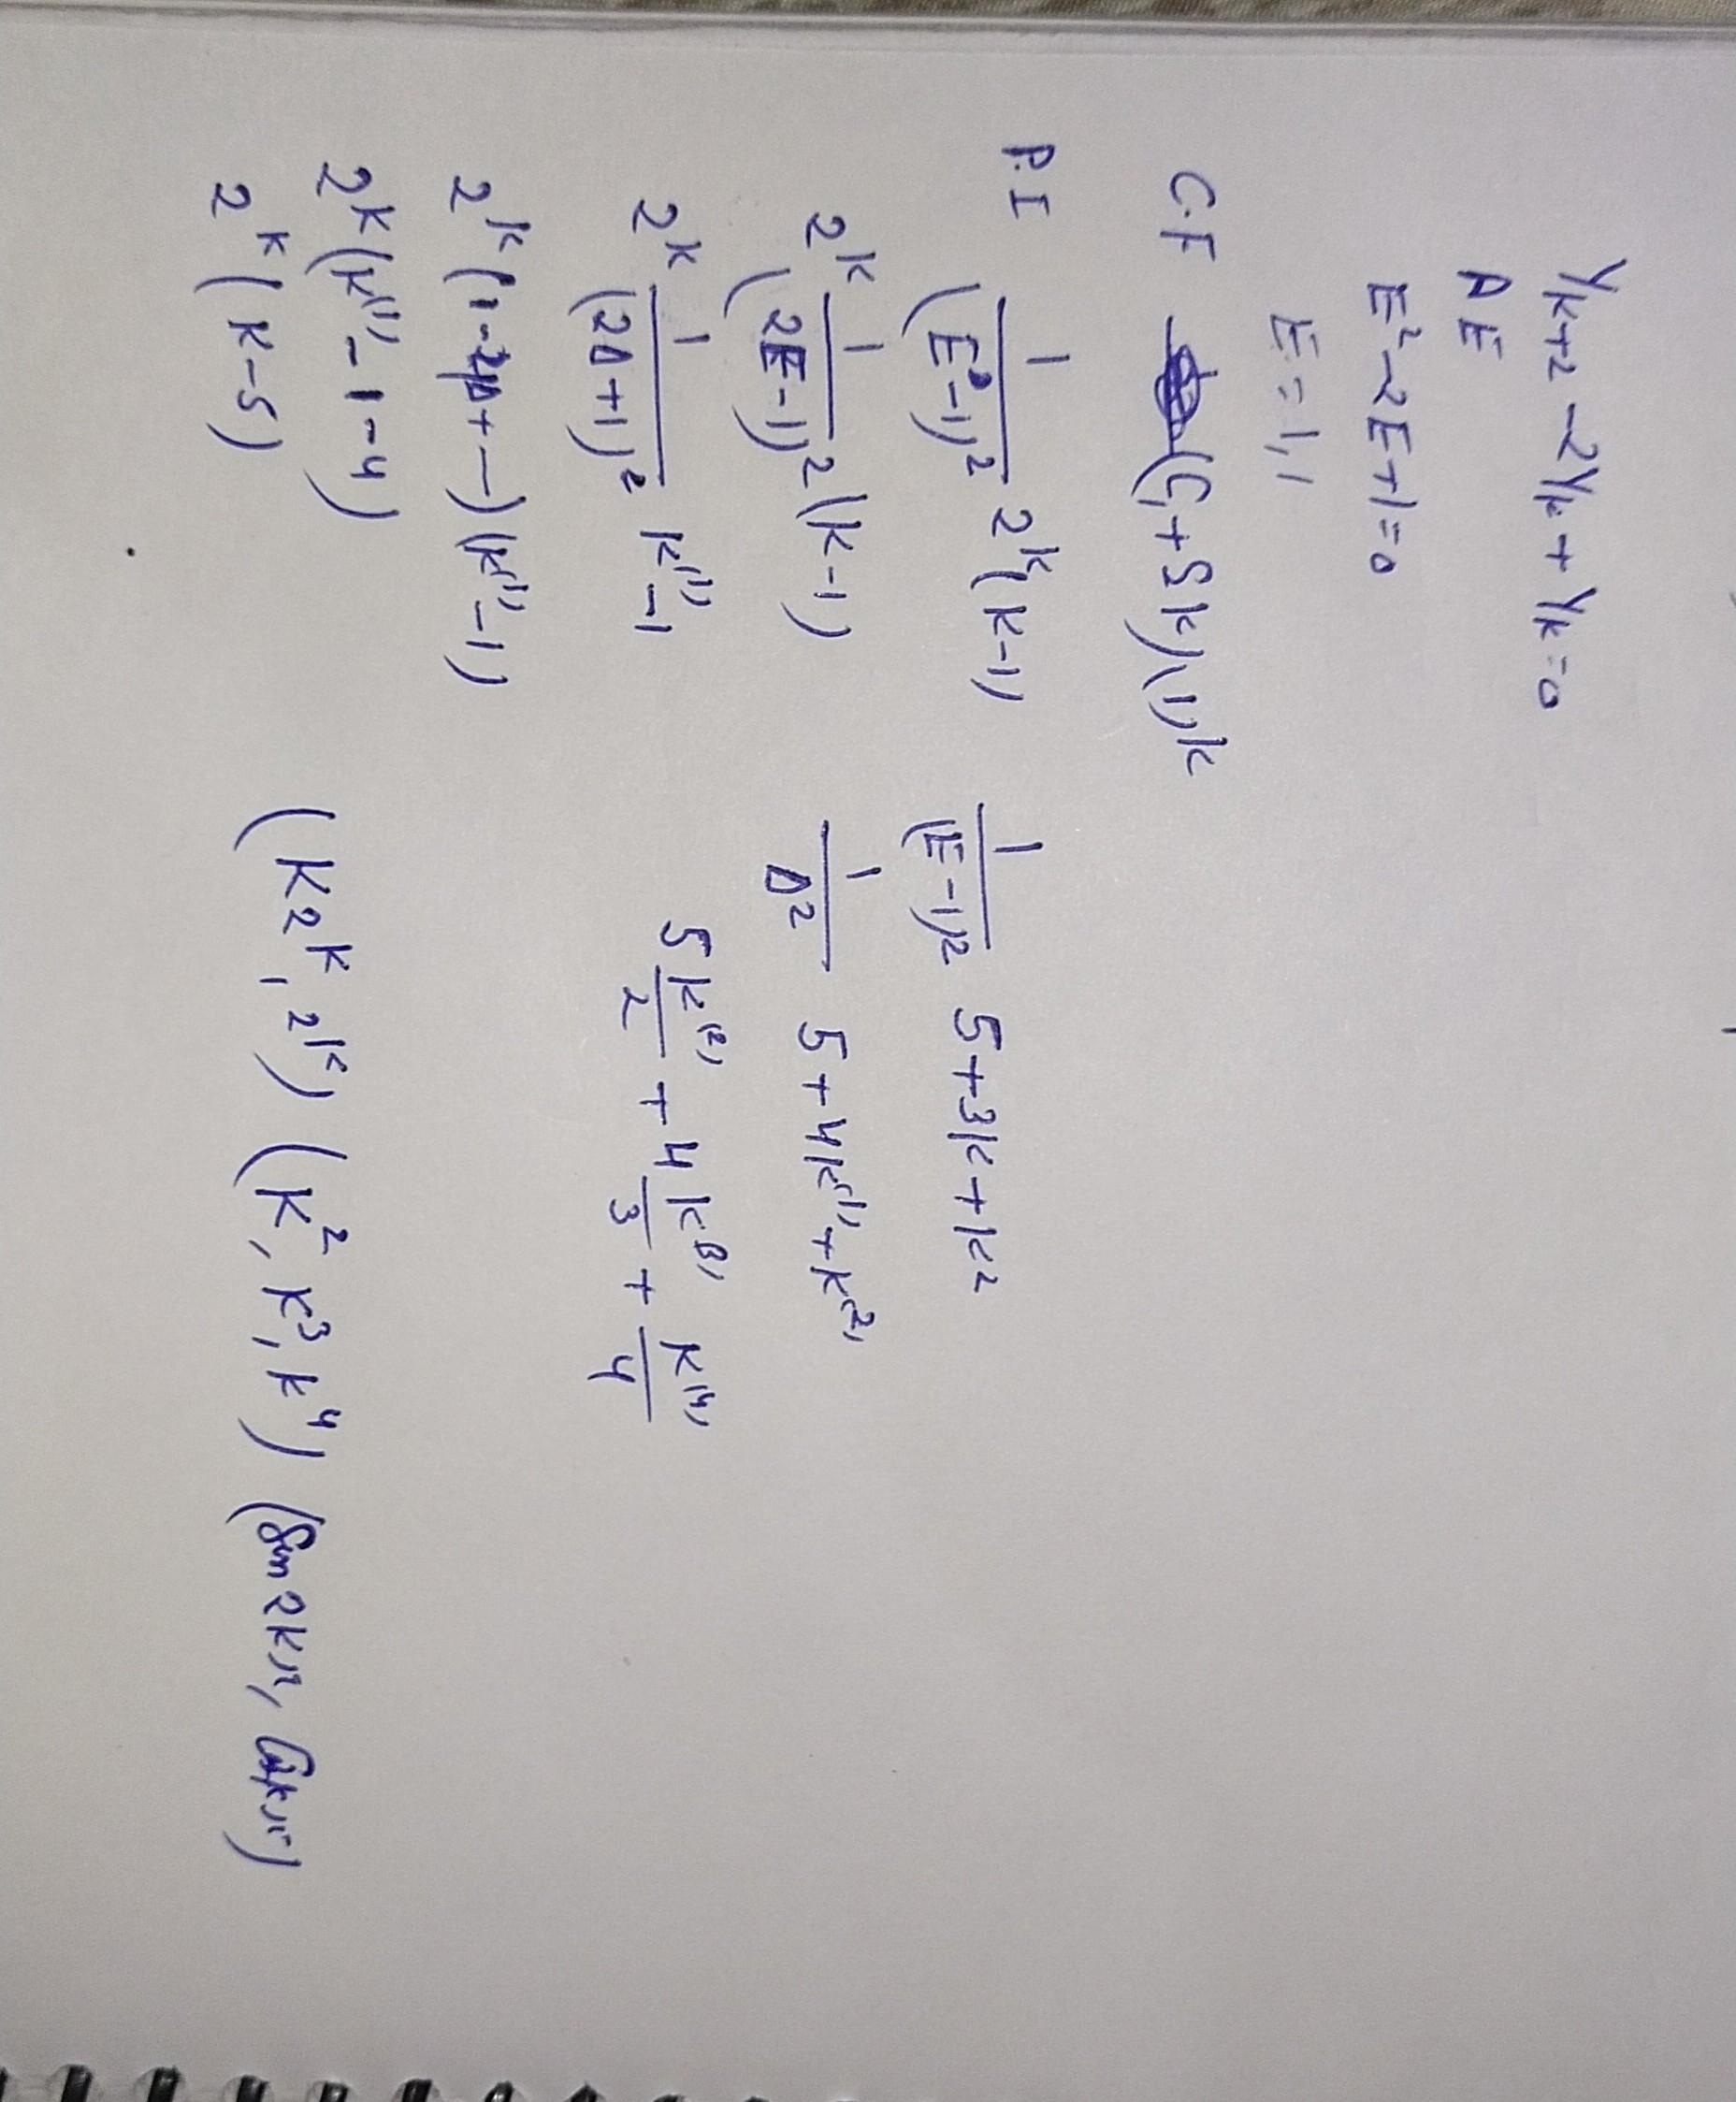 y_{k+2} - 2y_k + y_k = 0
A E
E² - 2E + 1 = 0
E = 1, 1
C.F (C₁ + Sk)(1)^k
P.I 1/(E² - 1)² 2^k(k - 1)
2^k 1/(2E - 1)² (k - 1)
2^k 1/(2Δ + 1)² k^(1) - 1
2^k (1 - 4Δ + -) (k^(1) - 1)
2^k (k^(1) - 1 - 4)
2^k (k - 5)
1/(E - 1)² 5 + 3k + k²
1/Δ² 5 + 4k^(1) + k^(2)
5k^(2)/2 + 4k^(3)/3 + k^(4)/4
(k2^k, 2^k) (k², k³, k⁴) (Sin 2kπ, Coskπ)